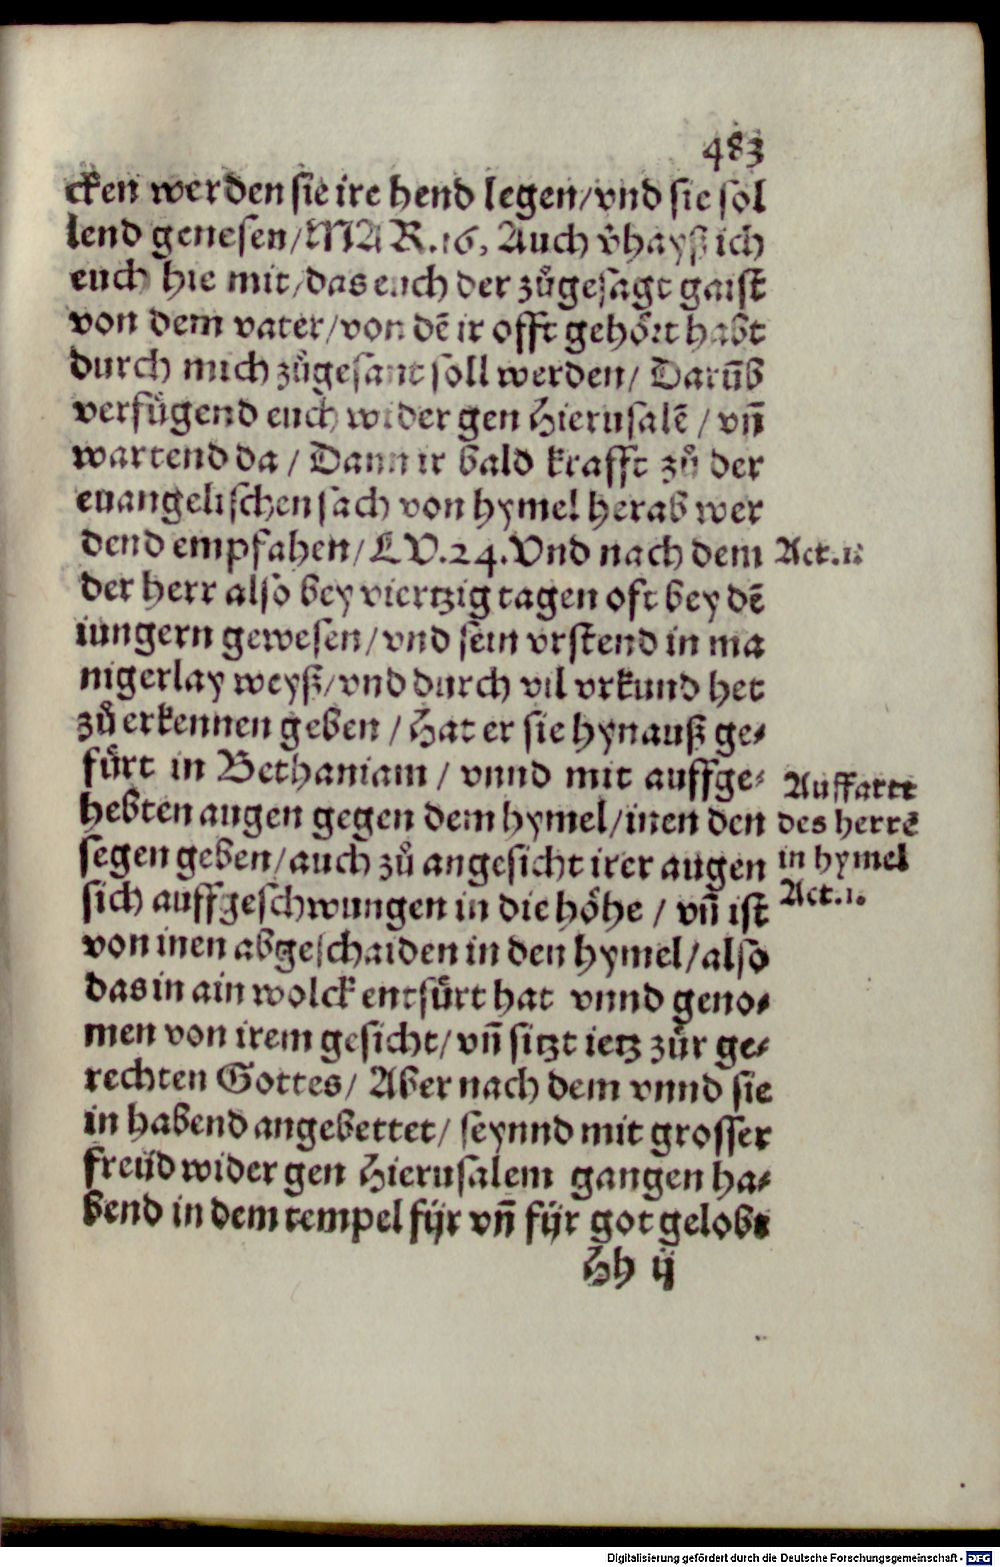 483
cken werden sie ire hend legen/vnd sie sol
lend genesen/MAR.16, Auch v̈hayß ich
euch hie mit/das euch der zůgesagt gaist
von dem vater/von dē ir offt gehört habt
durch mich zůgesant soll werden/ Darūb
verfügend euch wider gen Hierusalē / vn̄
wartend da / Dann ir bald krafft zů der
euangelischen sach von hymel herab wer
dend empfahen/LV.24.Vnd nach dem
Act.1.
der herr also bey viertzig tagen oft bey dē
iungern gewesen/vnd sein vrstend in ma
nigerlay weyß/vnd durch vil vrkund het
zů erkennen geben / Hat er sie hynauß ge⸗
fürt in Bethaniam / vnnd mit auffge⸗
hebten augen gegen dem hymel/inen den
segen geben/auch zů angesicht irer augen
sich auffgeschwungen in die höhe / vn̄ ist
Auffartt
des herrē
in hymel
Act.1.
von inen abgeschaiden in den hymel/also
das in ain wolck entfürt hat vnnd geno⸗
men von irem gesicht/vn̄ sitzt ietz zůr ge⸗
rechten Gottes/ Aber nach dem vnnd sie
in habend angebettet/ seynnd mit grosser
freüd wider gen Hierusalem gangen ha⸗
bend in dem tempel für vn̄ für got gelobt
Hh ij
Digitalisierung gefördert durch die Deutsche Forschungsgemeinschaft - DFG